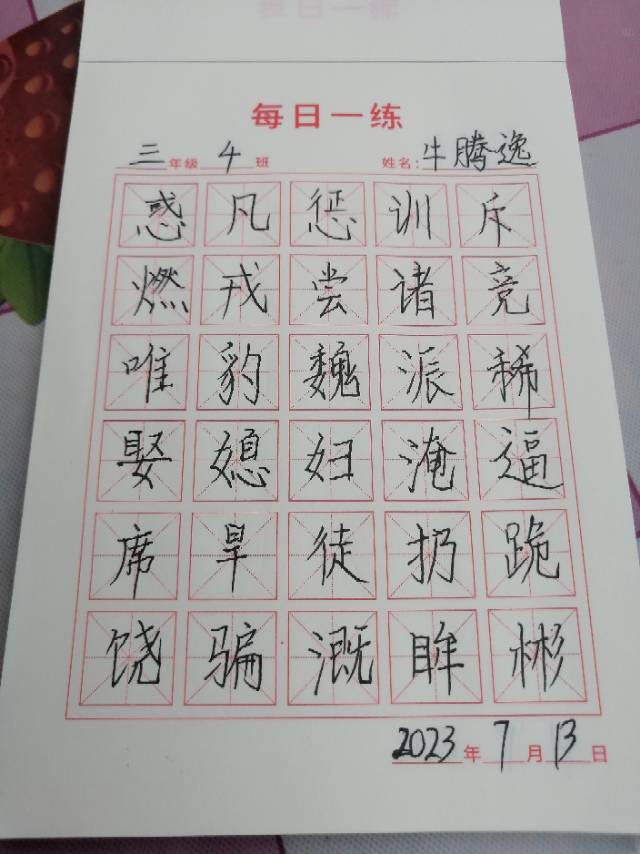 每日一练
三年级 4班 姓名:牛腾逸
惑凡惩训斥
燃戎尝诸竞
唯豹魏派稀
娶媳妇淹逼
席旱徒扔跪
饶骗溉眸彬
2023年7月13日